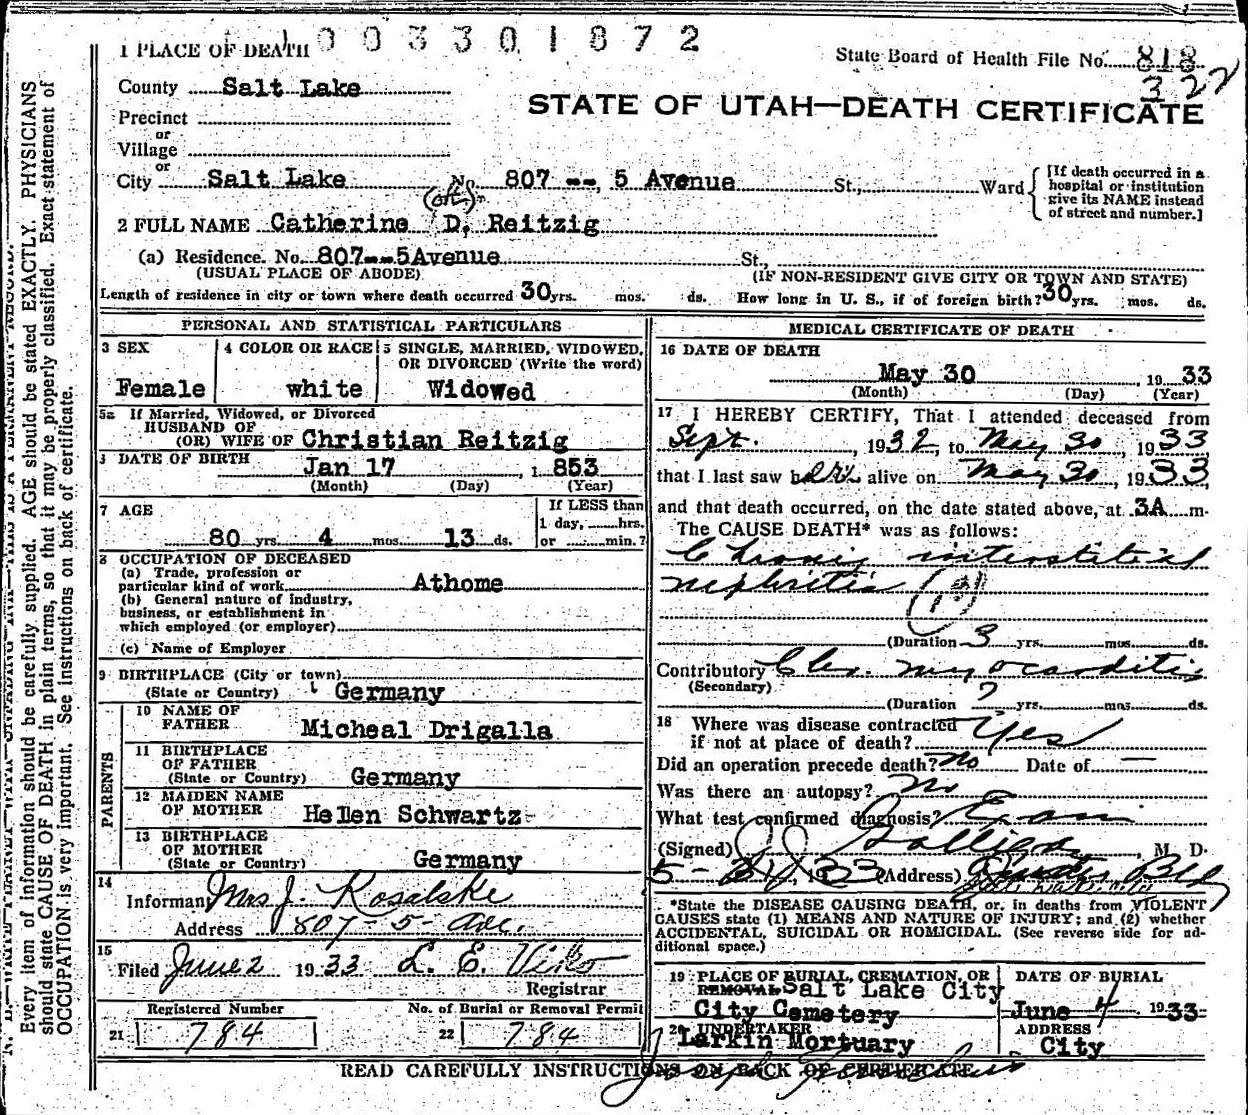 1 0 0 3 3 0 1 8 7 2
1 PLACE OF DEATH
State Board of Health File No. 818
322
County Salt Lake
STATE OF UTAH—DEATH CERTIFICATE
Precinct
or
Village
or
City Salt Lake No. 807 --, 5 Avenue St., Ward
[If death occurred in a
hospital or institution
give its NAME instead
of street and number.]
2 FULL NAME Catherine D, Reitzig
(a) Residence. No. 807--5Avenue St.,
(USUAL PLACE OF ABODE) (IF NON-RESIDENT GIVE CITY OR TOWN AND STATE)
Length of residence in city or town where death occurred 30 yrs. mos. ds. How long in U. S., if of foreign birth? 30 yrs. mos. ds.
PERSONAL AND STATISTICAL PARTICULARS
3 SEX
Female
4 COLOR OR RACE
white
5 SINGLE, MARRIED, WIDOWED,
OR DIVORCED (Write the word)
Widowed
5a If Married, Widowed, or Divorced
HUSBAND OF
(OR) WIFE OF Christian Reitzig
DATE OF BIRTH
Jan 17, 1853
(Month) (Day) (Year)
7 AGE
80 yrs. 4 mos. 13 ds.
If LESS than
1 day, hrs.
or min.?
8 OCCUPATION OF DECEASED
(a) Trade, profession or
particular kind of work Athome
(b) General nature of industry,
business, or establishment in
which employed (or employer)
(c) Name of Employer
9 BIRTHPLACE (City or town)
(State or Country) Germany
PARENTS
10 NAME OF
FATHER Micheal Drigalla
11 BIRTHPLACE
OF FATHER
(State or Country) Germany
12 MAIDEN NAME
OF MOTHER Hellen Schwartz
13 BIRTHPLACE
OF MOTHER
(State or Country) Germany
14
Informant Mrs J. Kosalske
Address 807-5-Ave.
15
Filed June 2 1933 L. E. Viko
Registrar
Registered Number
21 784
No. of Burial or Removal Permit
22 784
MEDICAL CERTIFICATE OF DEATH
16 DATE OF DEATH
May 30, 1933
(Month) (Day) (Year)
17 I HEREBY CERTIFY, That I attended deceased from
Sept. , 1932, to May 30, 1933
that I last saw her alive on May 30, 1933,
and that death occurred, on the date stated above, at 3A m.
The CAUSE DEATH* was as follows:
Chronic interstitial
nephritis
(Duration 3 yrs. mos. ds.
Contributory Chr. myocarditis
(Secondary)
(Duration ? yrs. mos. ds.
18 Where was disease contracted
if not at place of death? Yes
Did an operation precede death? No Date of —
Was there an autopsy? No
What test confirmed diagnosis? Exam
(Signed) M D.
5-31, 1933 (Address) Bldg
*State the DISEASE CAUSING DEATH, or, in deaths from VIOLENT
CAUSES state (1) MEANS AND NATURE OF INJURY; and (2) whether
ACCIDENTAL, SUICIDAL OR HOMICIDAL. (See reverse side for ad-
ditional space.)
19 PLACE OF BURIAL, CREMATION, OR
REMOVAL Salt Lake City
City Cemetery
DATE OF BURIAL
June 4, 1933
20 UNDERTAKER
Larkin Mortuary
ADDRESS
City
READ CAREFULLY INSTRUCTIONS ON BACK OF CERTIFICATE
Every item of information should be carefully supplied. AGE should be stated EXACTLY. PHYSICIANS
should state CAUSE OF DEATH in plain terms, so that it may be properly classified. Exact statement of
OCCUPATION is very important. See instructions on back of certificate.